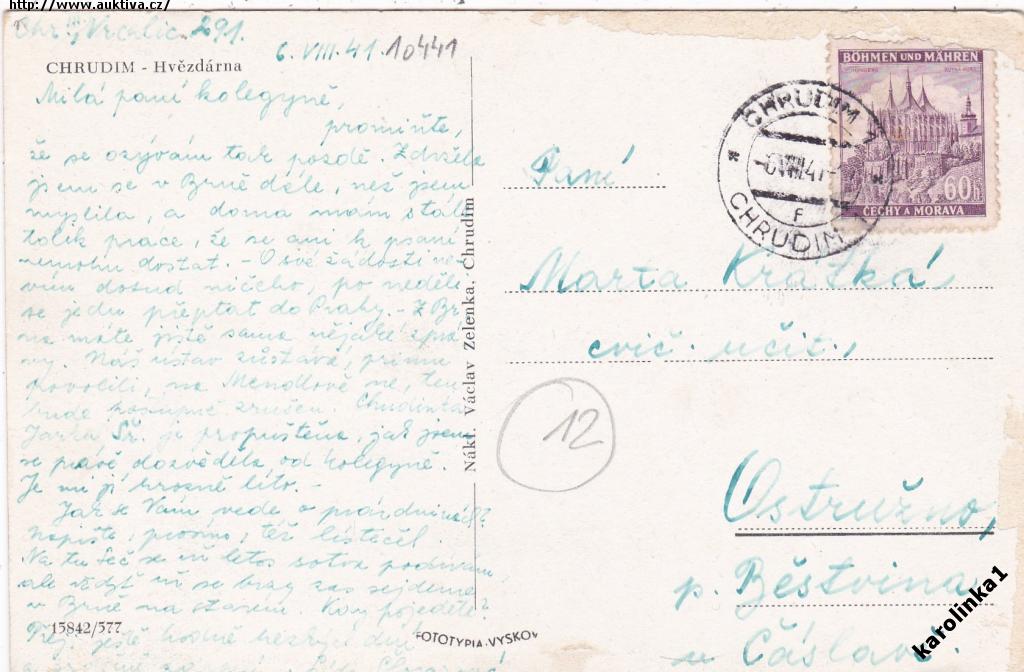 http://www.auktiva.cz/
291.
6. VIII. 41. 10441
CHRUDIM - Hvězdárna
Milá paní kolegyně,
promiňte,
že se ozývám tak pozdě. Zdržela
jsem se v Brně déle, než jsem
myslila, a doma mám stále
tolik práce, že se ani k psaní
nemohu dostat. - O své žádosti ne-
vím dosud ničeho, po neděli
se jedu přeptat do Prahy. - Z Br-
na máte jistě sama nějaké zprá-
vy. Náš ústav zůstává, primu
povolili, na Mendlově ne, ten
bude postupně zrušen. Chudinka
Jarka Sř. je propuštěna, jak jsem
se právě dozvěděla od kolegyně.
Je mi jí hrozně líto. -
Jak se Vám vede o prázdninách?
Napište, prosím, též lísteček.
Na tu Seč se už letos sotva podívám,
ale vždyť už se brzy zas sejdeme
v Brně na starém. Kam pojedete?
ještě hodně hezkých dní
15842/577
Nákl. Václav Zelenka, Chrudim
FOTOTYPIA-VYŠKOV
BÖHMEN UND MÄHREN
60h
ČECHY A MORAVA
CHRUDIM 1
VIII 41
f
CHRUDIM
Paní
Marta Krátká
cvič. učit.,
12
Ostružno,
p. Běstvina
u Čáslavě
karolinka1